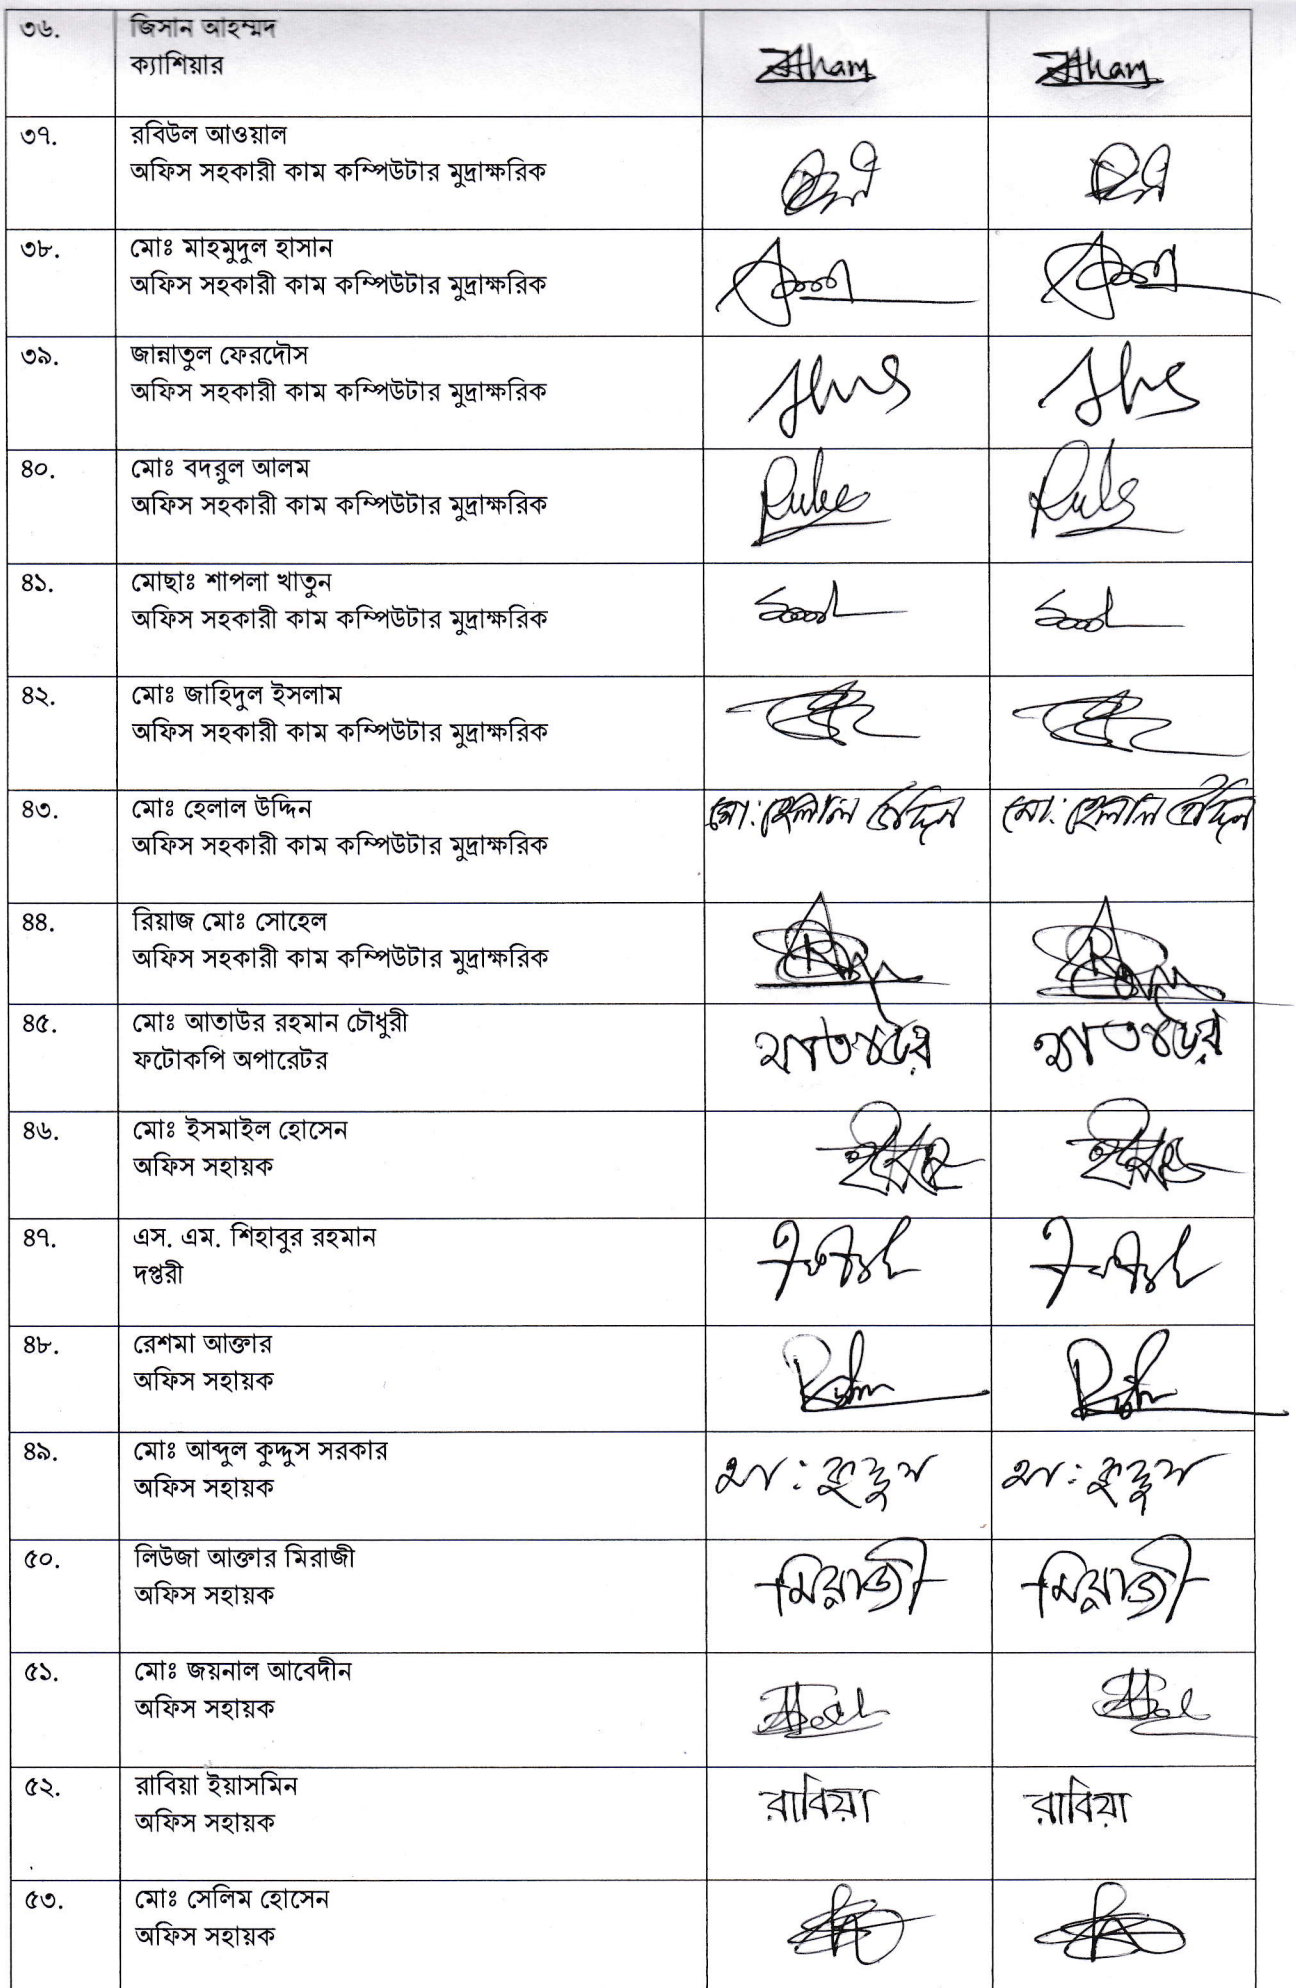 ৩৬. জিসান আহম্মদ
ক্যাশিয়ার
৩৭. রবিউল আওয়াল
অফিস সহকারী কাম কম্পিউটার মুদ্রাক্ষরিক
৩৮. মোঃ মাহমুদুল হাসান
অফিস সহকারী কাম কম্পিউটার মুদ্রাক্ষরিক
৩৯. জান্নাতুল ফেরদৌস
অফিস সহকারী কাম কম্পিউটার মুদ্রাক্ষরিক
৪০. মোঃ বদরুল আলম
অফিস সহকারী কাম কম্পিউটার মুদ্রাক্ষরিক
৪১. মোছাঃ শাপলা খাতুন
অফিস সহকারী কাম কম্পিউটার মুদ্রাক্ষরিক
৪২. মোঃ জাহিদুল ইসলাম
অফিস সহকারী কাম কম্পিউটার মুদ্রাক্ষরিক
৪৩. মোঃ হেলাল উদ্দিন মো: হেলাল উদ্দিন মো: হেলাল উদ্দিন
অফিস সহকারী কাম কম্পিউটার মুদ্রাক্ষরিক
৪৪. রিয়াজ মোঃ সোহেল
অফিস সহকারী কাম কম্পিউটার মুদ্রাক্ষরিক
৪৫. মোঃ আতাউর রহমান চৌধুরী
ফটোকপি অপারেটর আতাউর আতাউর
৪৬. মোঃ ইসমাইল হোসেন
অফিস সহায়ক
৪৭. এস. এম. শিহাবুর রহমান
দপ্তরী
৪৮. রেশমা আক্তার
অফিস সহায়ক
৪৯. মোঃ আব্দুল কুদ্দুস সরকার
অফিস সহায়ক আ: কুদ্দুস আ: কুদ্দুস
৫০. লিউজা আক্তার মিরাজী
অফিস সহায়ক মিরাজী মিরাজী
৫১. মোঃ জয়নাল আবেদীন
অফিস সহায়ক
৫২. রাবিয়া ইয়াসমিন রাবিয়া রাবিয়া
অফিস সহায়ক
৫৩. মোঃ সেলিম হোসেন
অফিস সহায়ক